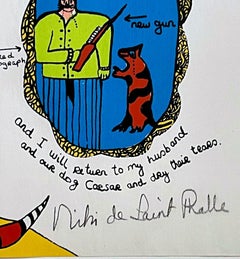 new gun
ed
ograph
And I will return to my husband
and our dog Caesar and dry their tears.
Niki de Saint Phalle